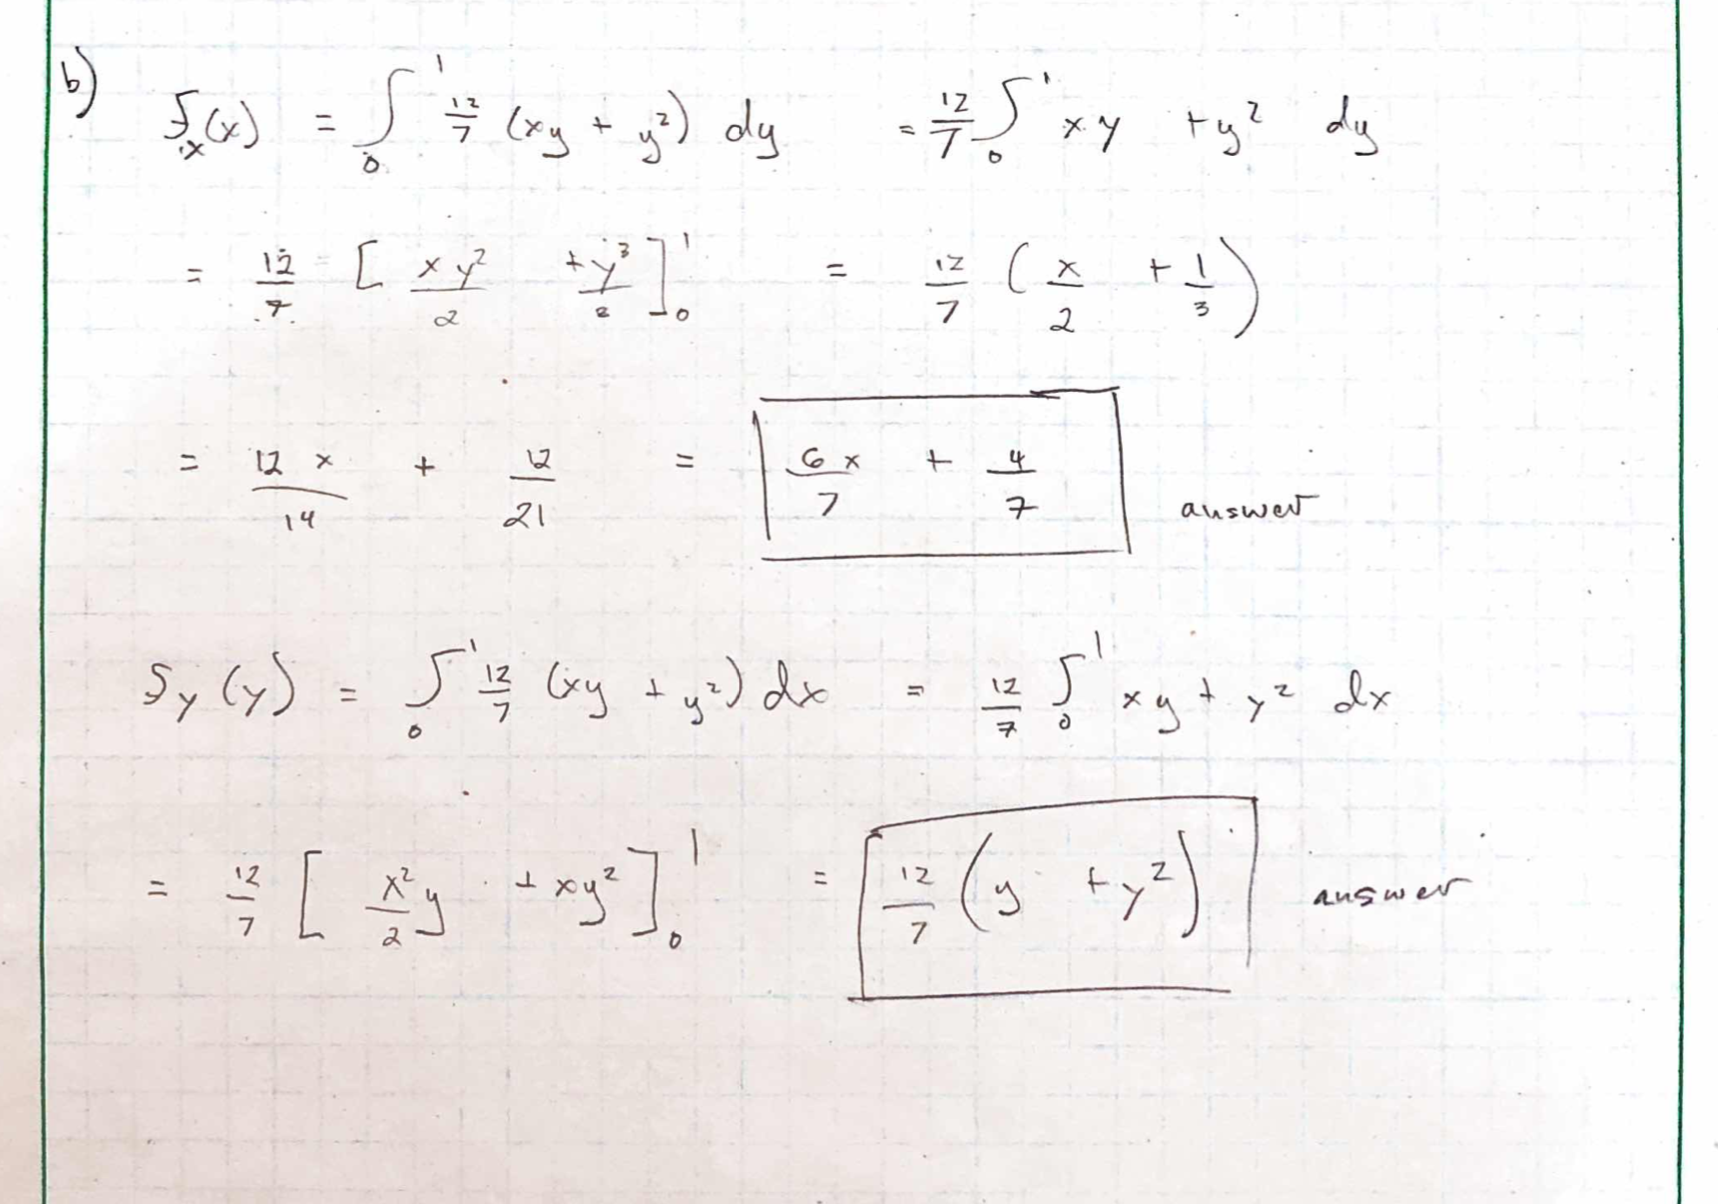 b) f_x(x) = ∫_0^1 12/7 (xy + y²) dy = 12/7 ∫_0^1 xy + y² dy
= 12/7 [ xy²/2 + y³/2 ]_0^1 = 12/7 ( x/2 + 1/3 )
= 12x/14 + 12/21 = 6x/7 + 4/7 answer
f_y(y) = ∫_0^1 12/7 (xy + y²) dx = 12/7 ∫_0^1 xy + y² dx
= 12/7 [ x²/2 y + xy² ]_0^1 = 12/7 ( y + y² ) answer